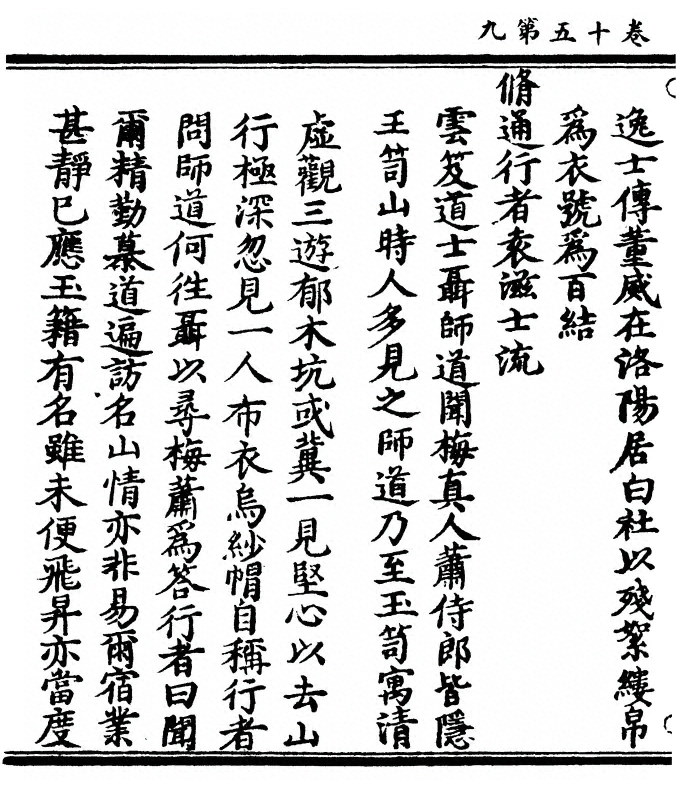 卷十五第九
逸士傳董威在洛陽居白社以殘絮縷帛
爲衣號爲百結
脩通行者袁滋士流
雲笈道士聶師道聞梅真人蕭侍郎皆隱
玉笥山時人多見之師道乃至玉笥寓清
虛觀三遊郁木坑或冀一見堅心以去山
行極深忽見一人布衣烏紗帽自稱行者
問師道何徃聶以尋梅蕭爲答行者曰聞
爾精勤慕道遍訪名山情亦非易爾宿業
甚靜已應玉籍有名雖未便飛昇亦當度